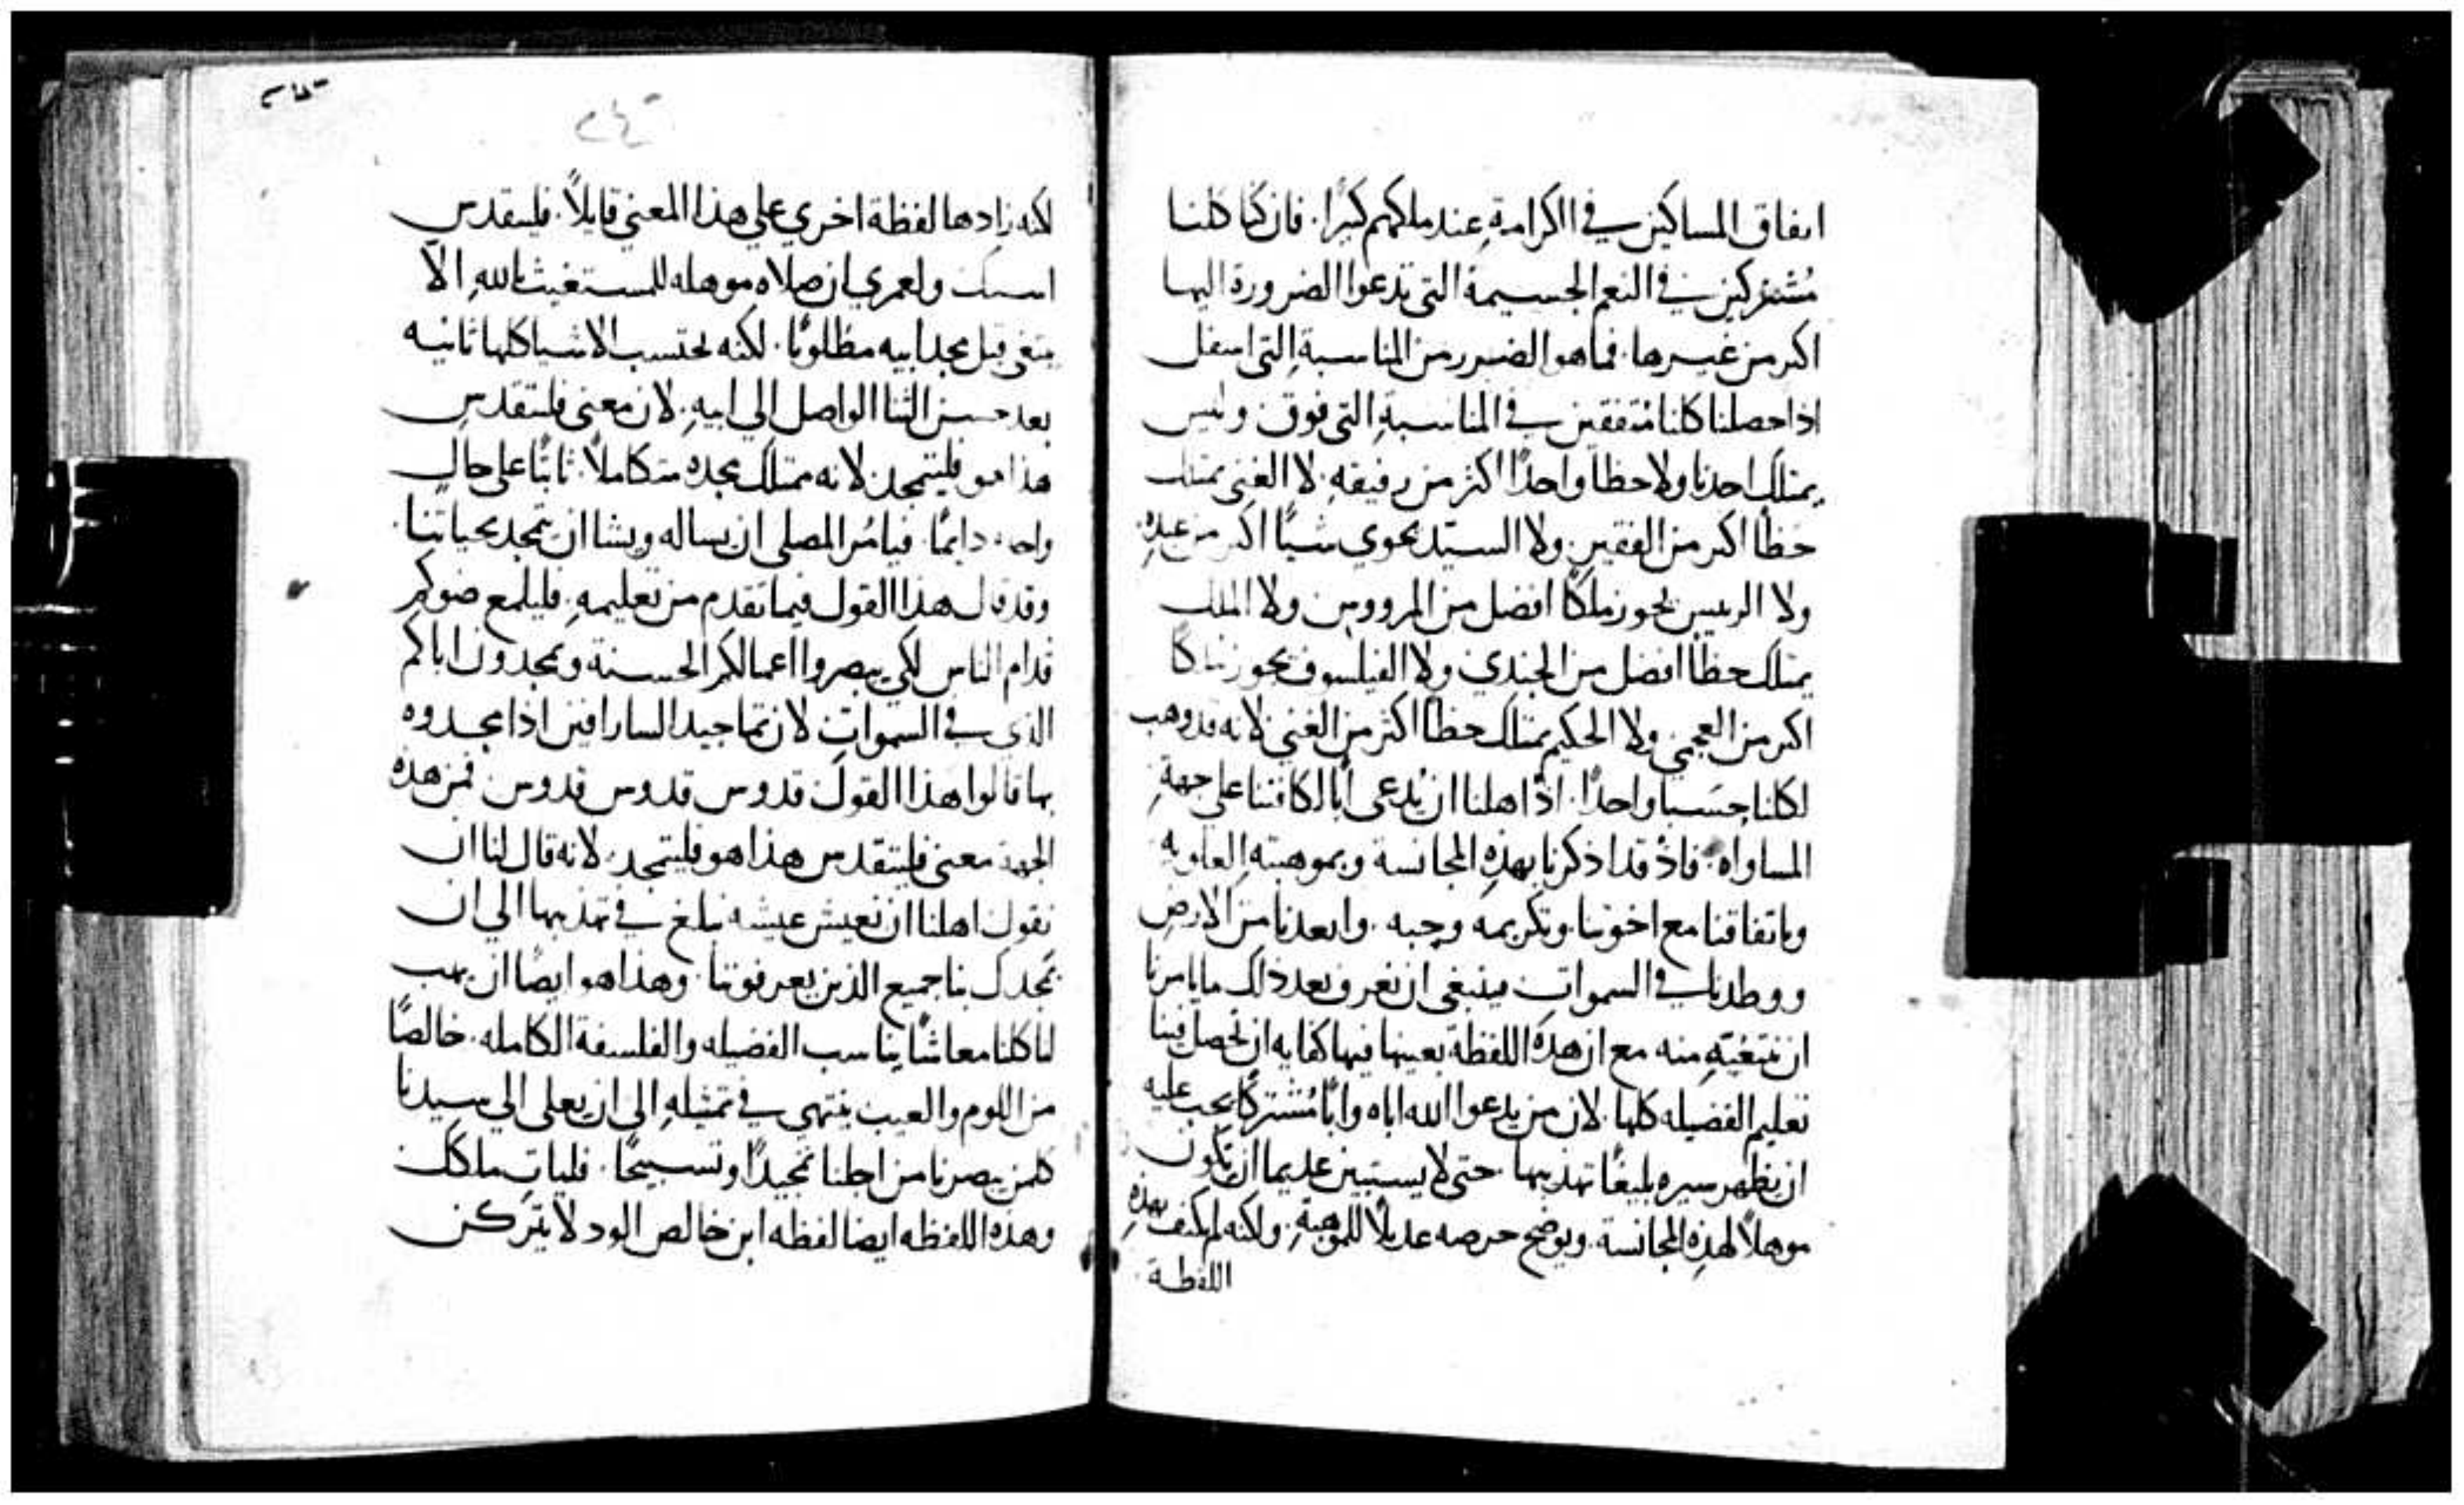 اتفاق المساكين في الكرامة عند ملكهم كبيرًا. فان كنا كلنا
مُشتركين في النعم الجسيمة التي تدعوا الضرورة اليها
اكثر من غيرها. فما هو الضرر من المناسبة التي اسفل
اذا حصلنا كلنا مُتفقين في المناسبة التي فوق. وليس
يمتلك احدنا ولا حظا واحدًا اكثر من رفيقهِ. لا الغني يمتلك
حَظاً اكثر من الفقير. ولا السيّد يحوي شيًا اكثر من عبدهِ
ولا الرييس يحوز ملكًا افضل من المرووس ولا الملك
يمتلك حظاً افضل من الجندي ولا الفيلسوف يحوز ملكًا
اكثر من العجمي ولا الحكيم يمتلك حظاً اكثر من الغبي لانه قد وهب
لكلنا حسَبا واحدًا. اذ اهلنا ان يُدعى أبًا لكافتنا على جهة
المساواه. فاذ قد اذكرنا بهذهِ المجانسة وبموهبته العلويه
وباتفاقنا مع اخوتنا. وتكريمه وحبه. وابعدنا من الارض
ووطدنا في السموات فينبغي ان نعرف بعد ذلك ما يامرنا
ان نبتغيه منه مع ان هذه اللفظة بعينها فيها كفايه ان تحصل فينا
تعليم الفضيله كلها. لان من يدعوا الله اباه وابًا مُشتركًا يجب عليه
ان يظهر سيره بليغًا تهذيبها. حتى لا يستبين عديما ان يكون
موهلاً لهذهِ المجانسة. ويوضح حرصه عديلاً للموهبة. ولكنه لم يكتف بهذهِ
اللفظة
٢٤٢
لكنه زادها لفظة اخري علي هذا المعني قايلاً. فليتقدس
اسمك ولعمري ان صلاه موهله للمستغيث بالله الاّ
يبتغي قبل مجد ابيه مطلوبًا. لكنه يحتسب الاشيا كلها ثانيه
بعد حسن الثنا الواصل الي ابيهِ. لان معني فليتقدس
هذا هو فليتمجد. لانه ممتلك مجده متكاملاً. ثابتًا علي حالٍ
واحده دايمًا. فيامُر المصلي ان يساله ويشا ان يتمجد بحياتنا.
وقد قال هذا القول فيما تقدم من تعليمهِ. فليلمع ضوكم
قدام الناس لكي يبصروا اعمالكم الحسنة ويمجدون اباكم
الذي في السموات. لان تماجيد السارافين اذا مجدوه
بها قالوا هذا القول قدوس قدوس قدوس. فمن هذه
الجهة معني فليتقدس هذا هو فليتمجد. لانه قال لنا ان
نقول اهلنا ان نعيش عيشه نبلغ في تهذيبها الي ان
يمجدك بنا جميع الذين يعرفوننا. وهذا هو ايضًا ان يهب
لنا كلنا معاشًا يناسب الفضيله والفلسفة الكامله. خالصًا
من اللوم والعيب ينتهي في تمثيله الي ان يعلى الي سيدنا
كلمن يبصرنا من اجلنا تمجيدًا وتسبيحًا. فليات ملكك
وهذه اللفظه ايضا لفظه ابن خالص الود لا يتركن